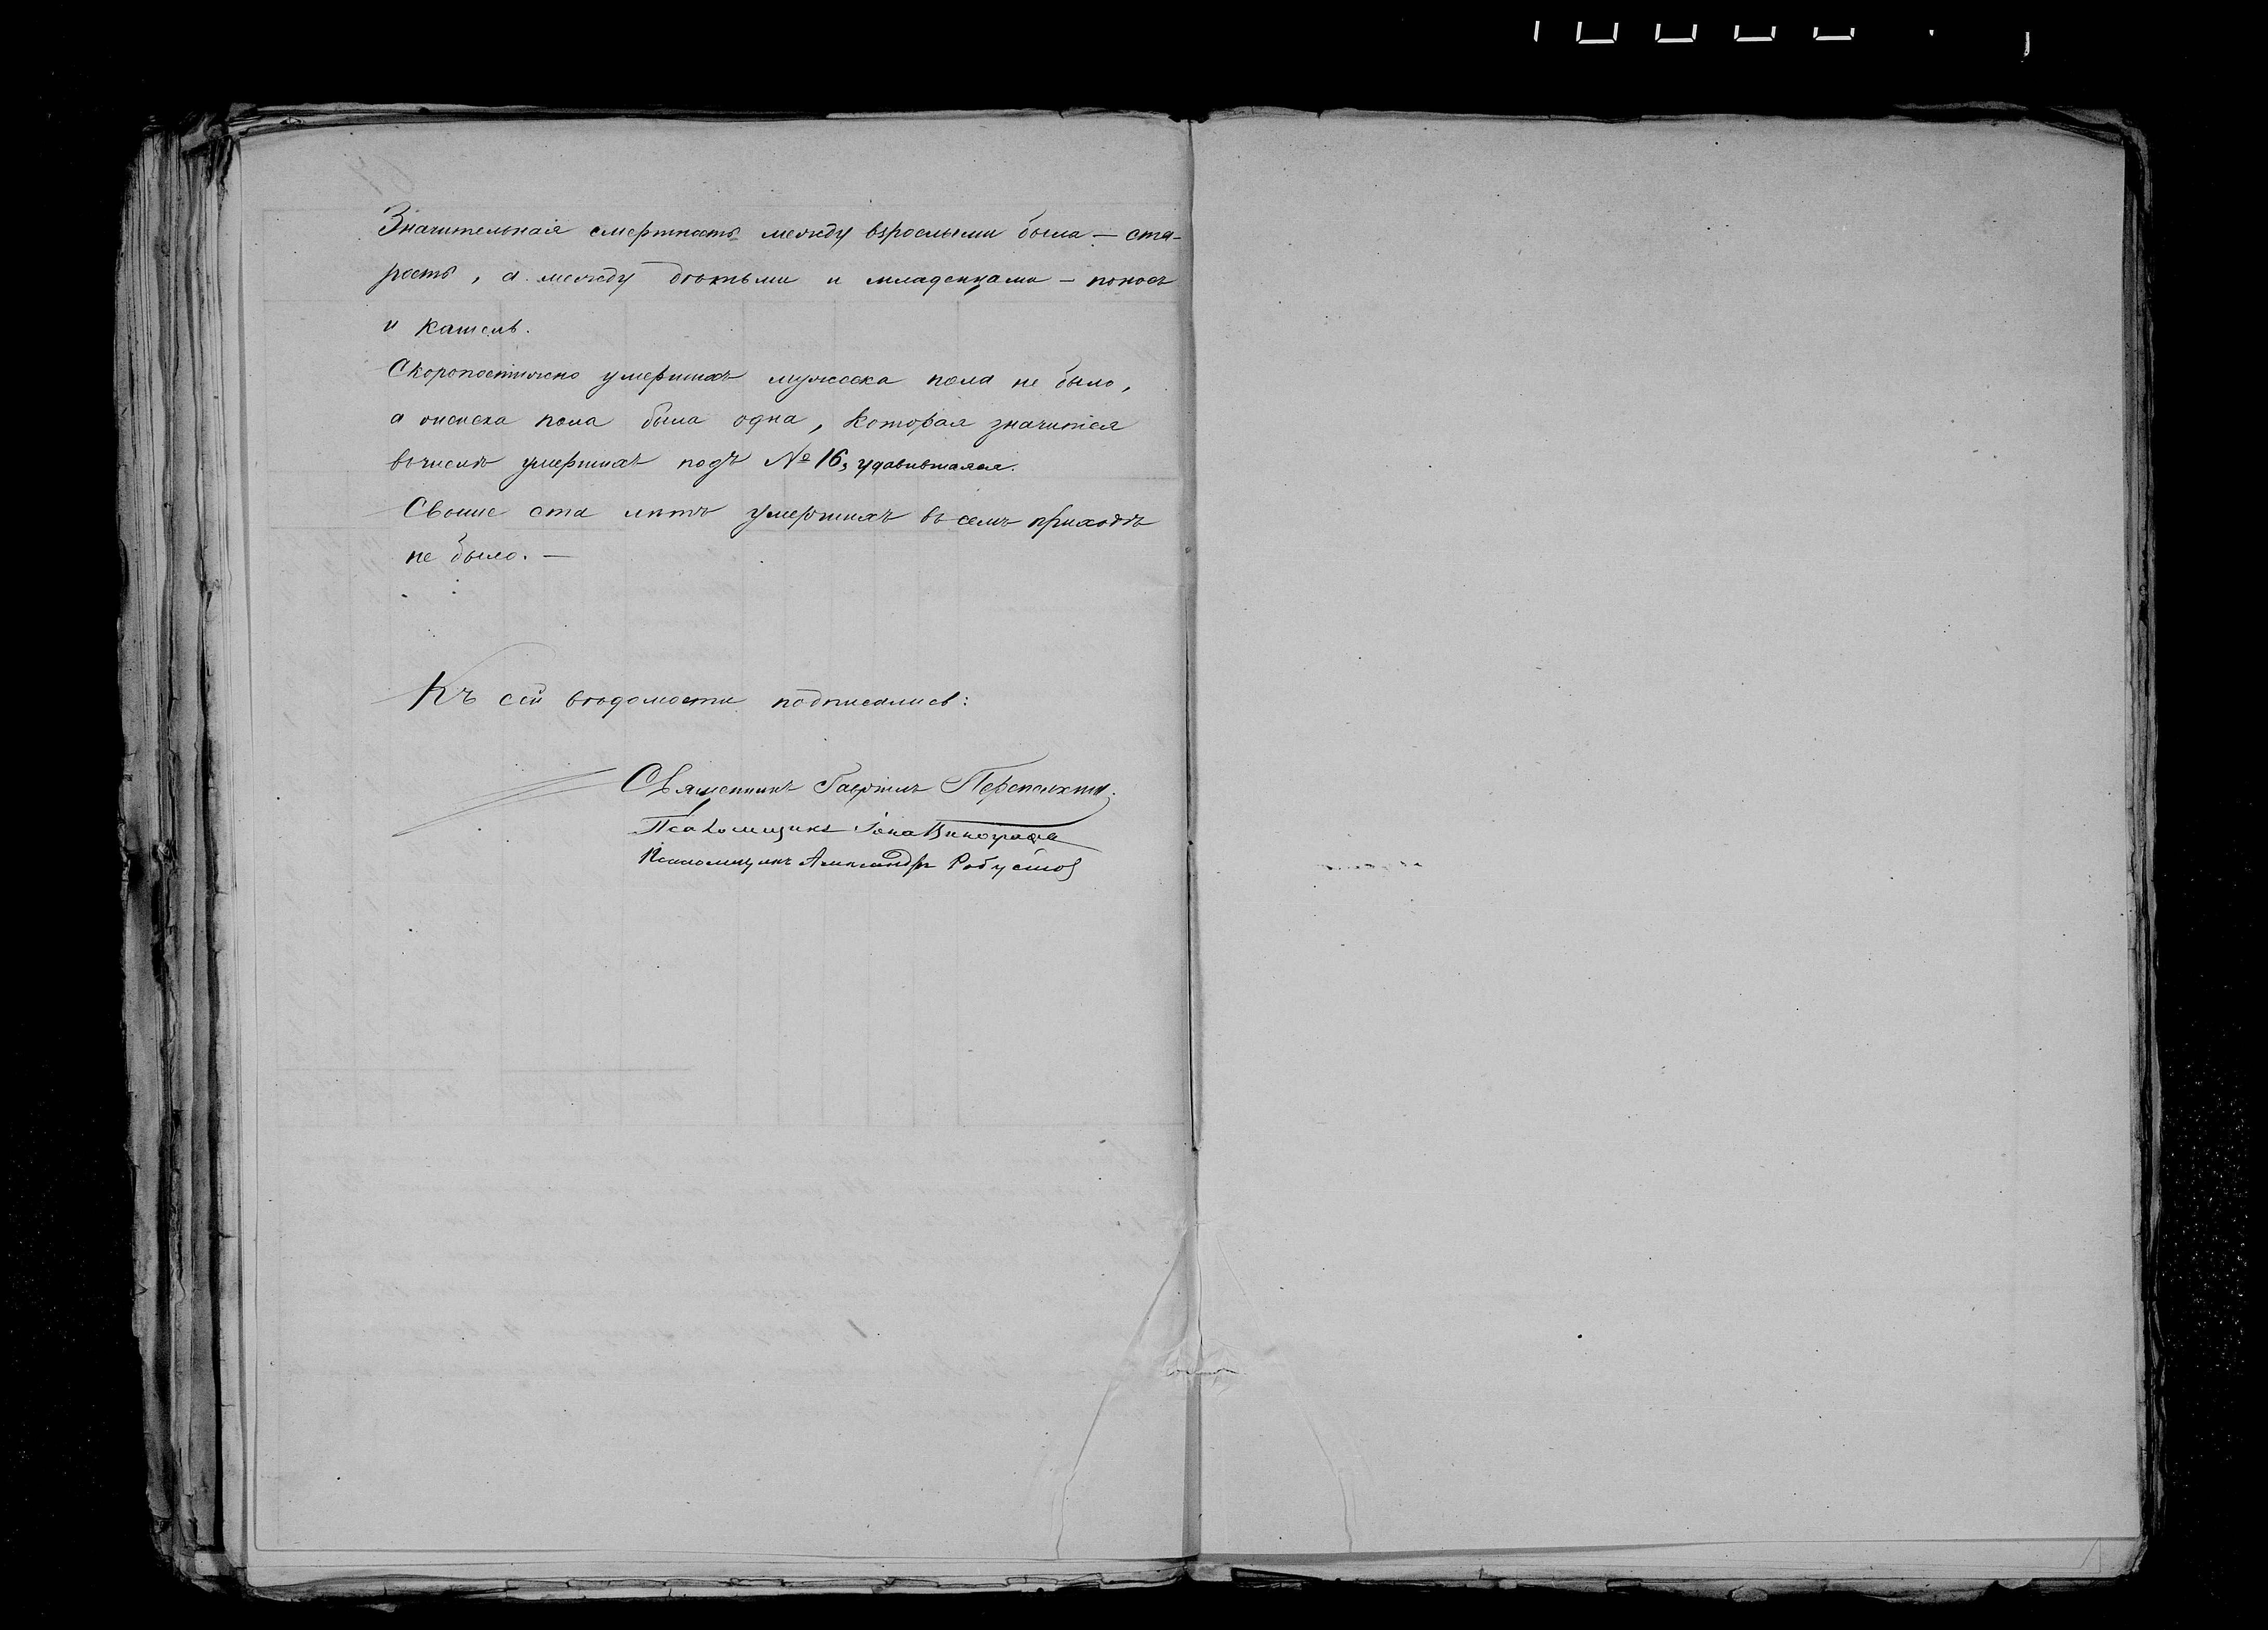 Значительная смертность между взрослыми была — ста-
рость, а между дѣтьми и младенцами — поносъ
и кашель.
Скоропостижно умершихъ мужеска пола не было,
а женска пола была одна, которая значится
въ числѣ умершихъ подъ № 16, удавившаяся.
Свыше ста лѣтъ умершихъ въ семъ приходѣ
не было. —
Къ сей вѣдомости подписались:
Священникъ Гавріилъ
Псаломщикъ Іона Виноградовъ
Псаломщикъ Александръ Робустов